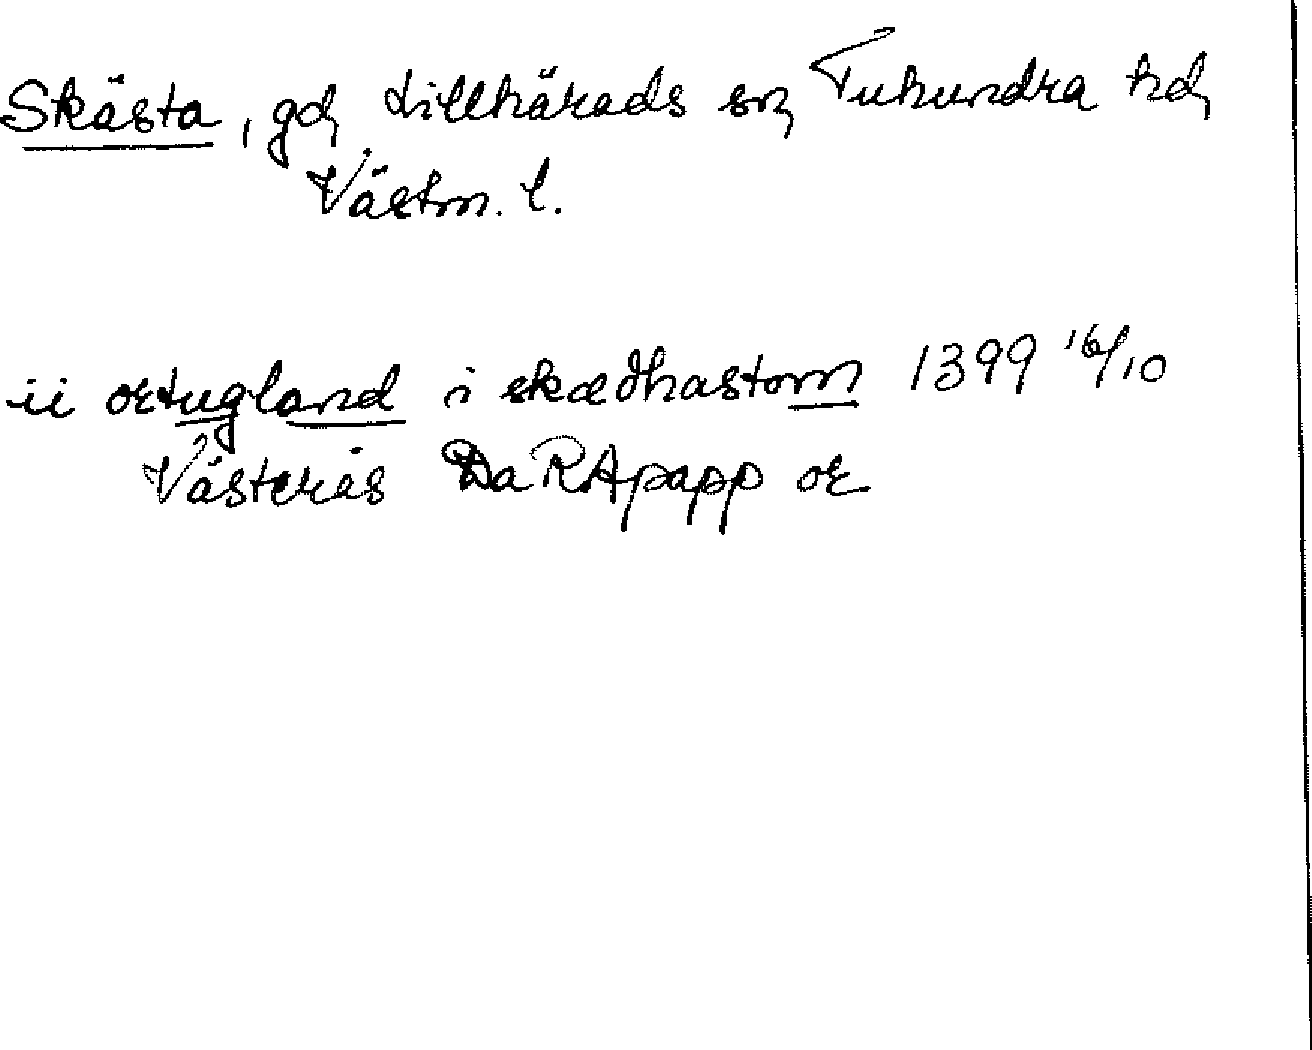 Skästa, gd, Lillhärads sn, Tuhundra hd,
Västm. l.
ii ortugland i skædhastom 1399 16/10
Västerås Da RApapp or